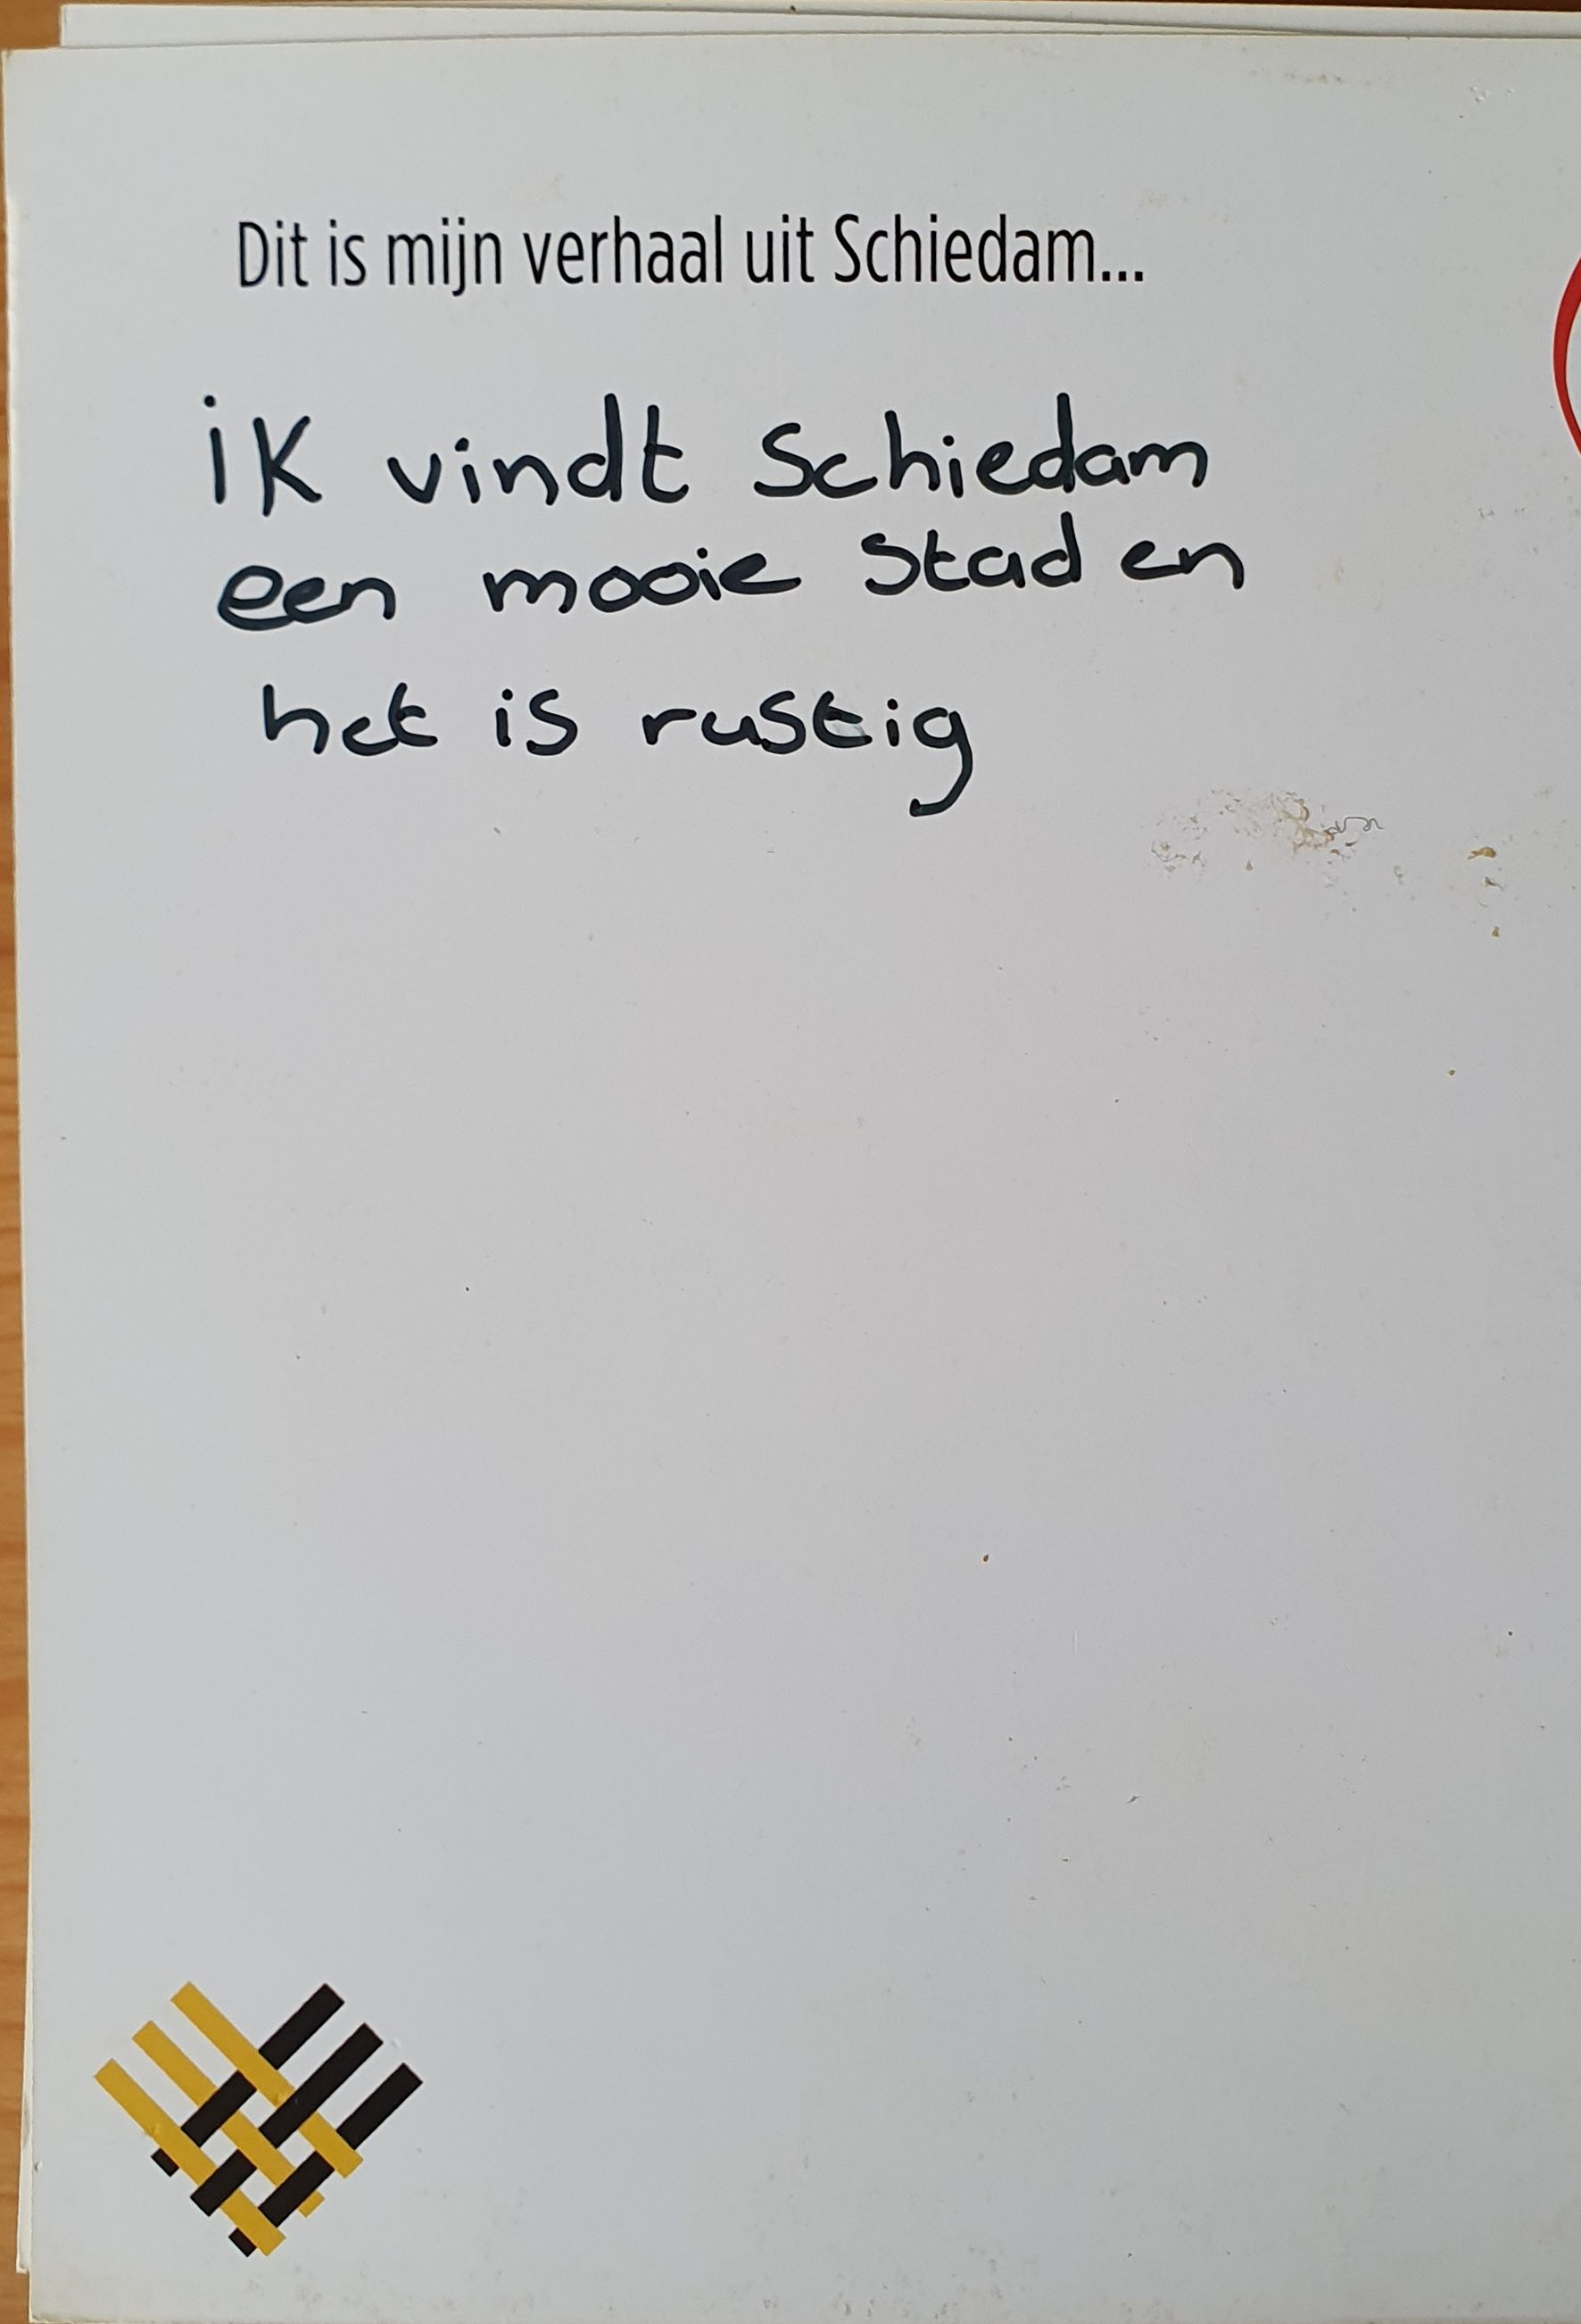 Dit is mijn verhaal uit Schiedam...
iK vindt Schiedam
een mooie Stad en
het is rustig